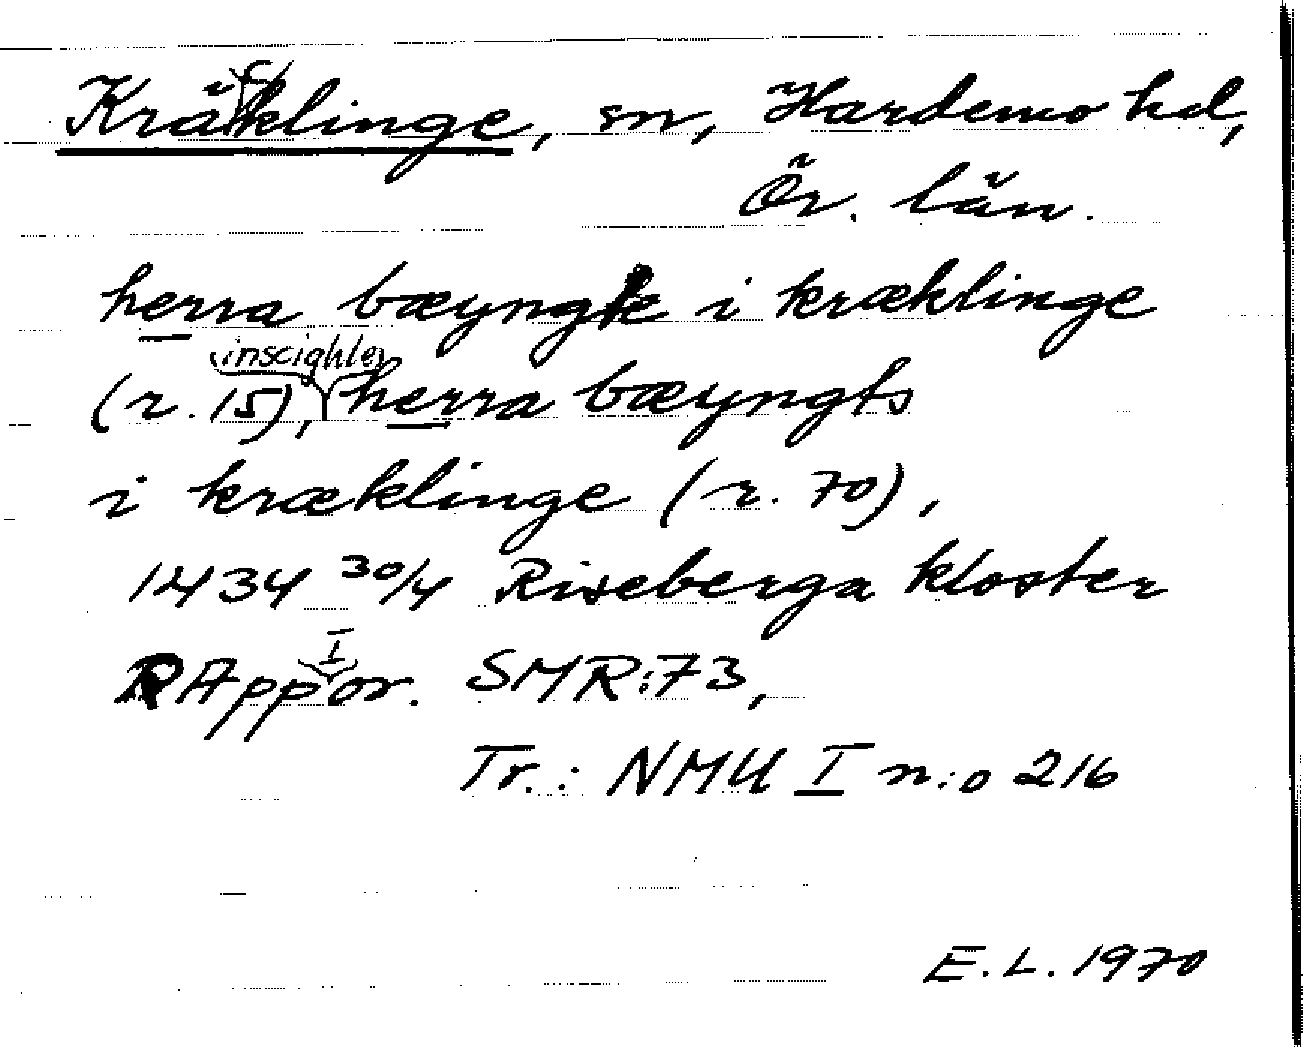 Kräcklinge, sn, Hardemo hd,
Ör. län.
herra bæyngk i kræklinge
(r. 15), (inscighle) herra bæyngts
i kræklinge (r. 70),
1434 30/4 Riseberga kloster
RAppor. I SMR:73,
Tr.: NMU I n:o 216
E.L. 1970